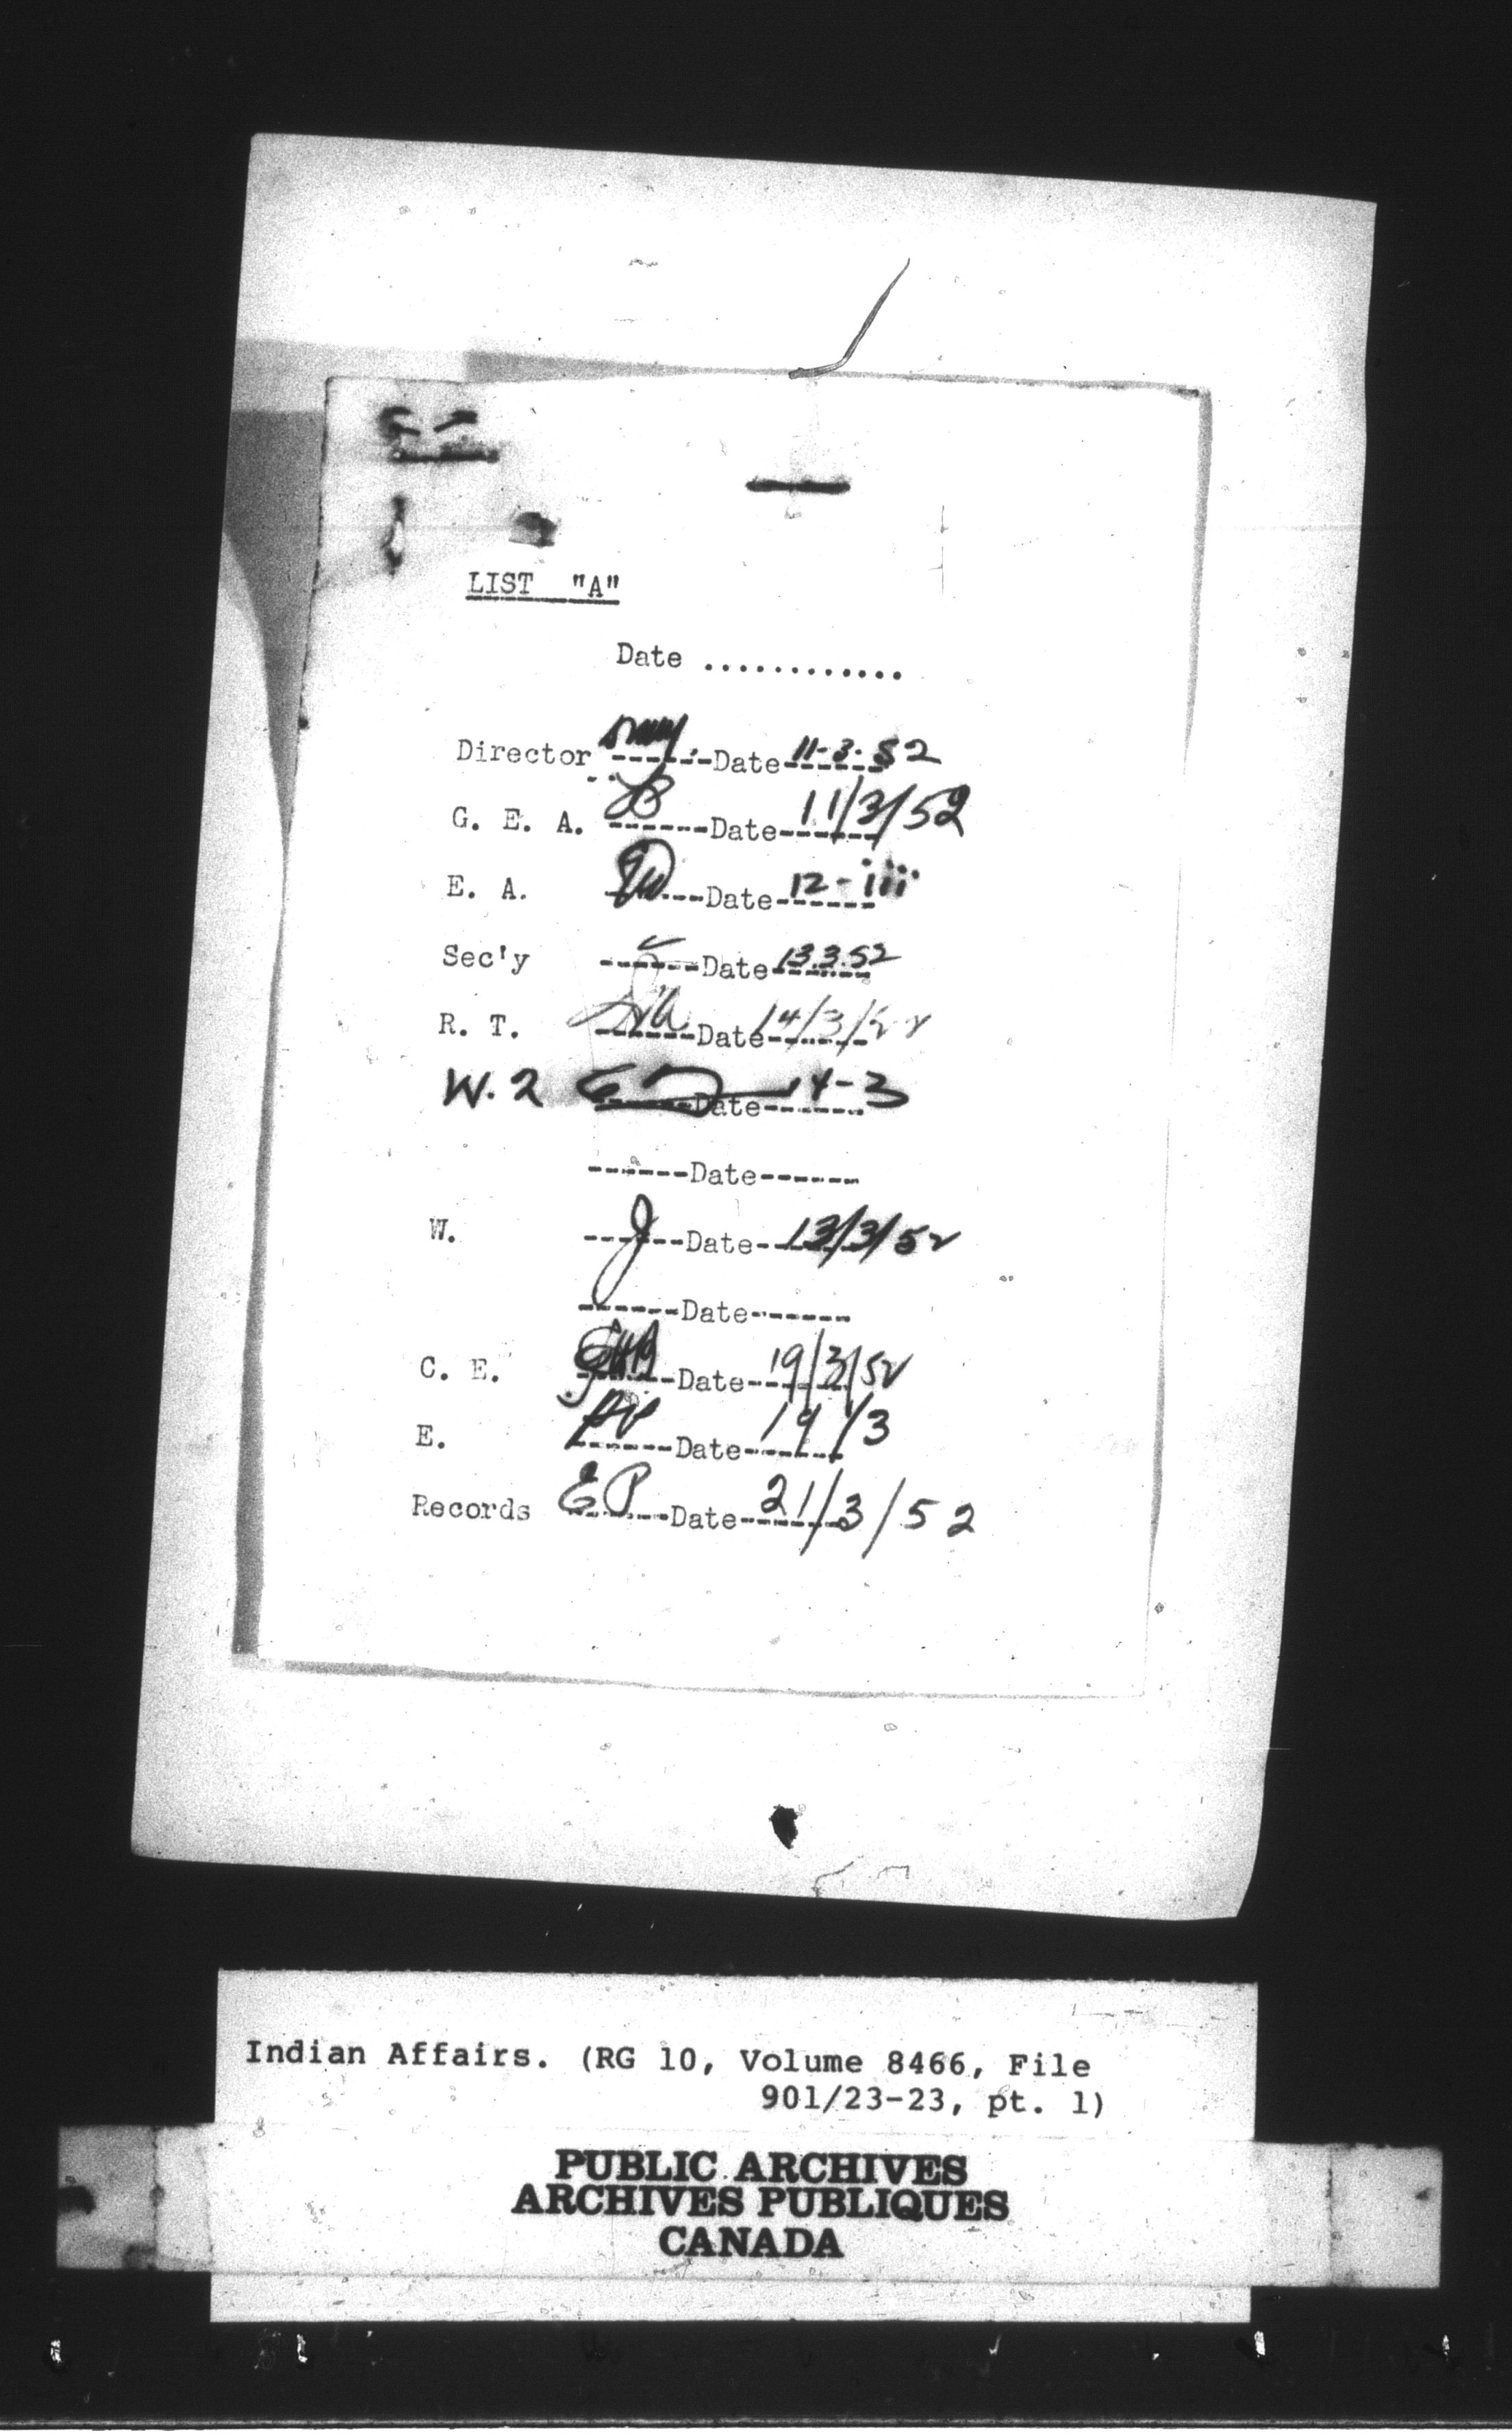 LIST "A"
Date ............
Director ------Date 11-3-52
G. E. A. ------Date 11/3/52
E. A. ------Date 12-iii
Sec'y ------Date 13.3.52
R. T. ------Date 14/3/52
W. 2 ------Date 14-3
------Date------
W. ------Date 13/3/52
------Date------
C. E. ------Date 19/3/52
E. ------Date 19/3
Records EP ------Date 21/3/52
Indian Affairs. (RG 10, Volume 8466, File
901/23-23, pt. 1)
PUBLIC ARCHIVES
ARCHIVES PUBLIQUES
CANADA